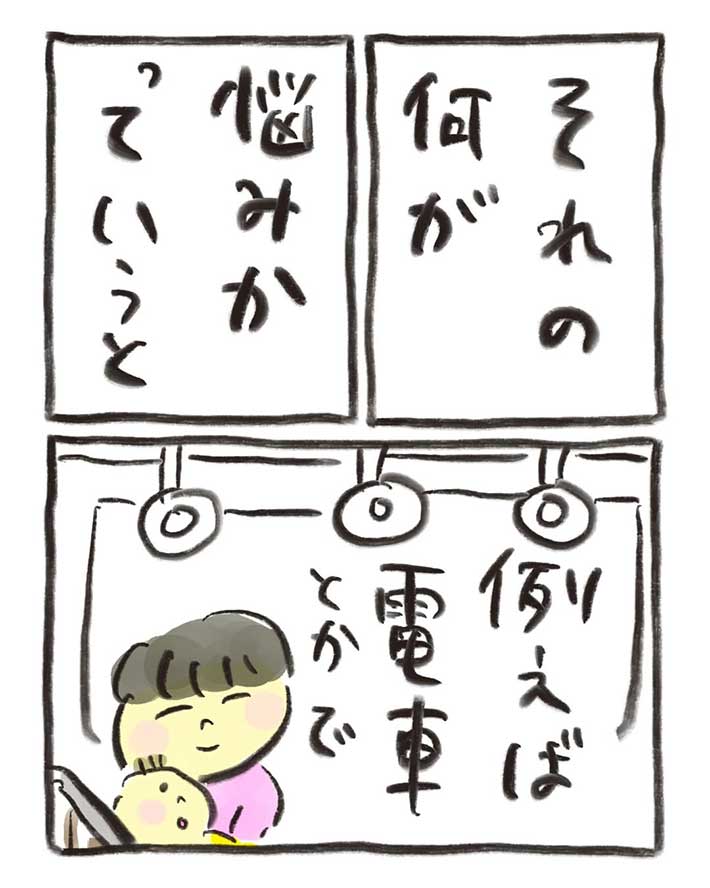 それの
何が
悩みか
っていうと
例えば
電車
とかで